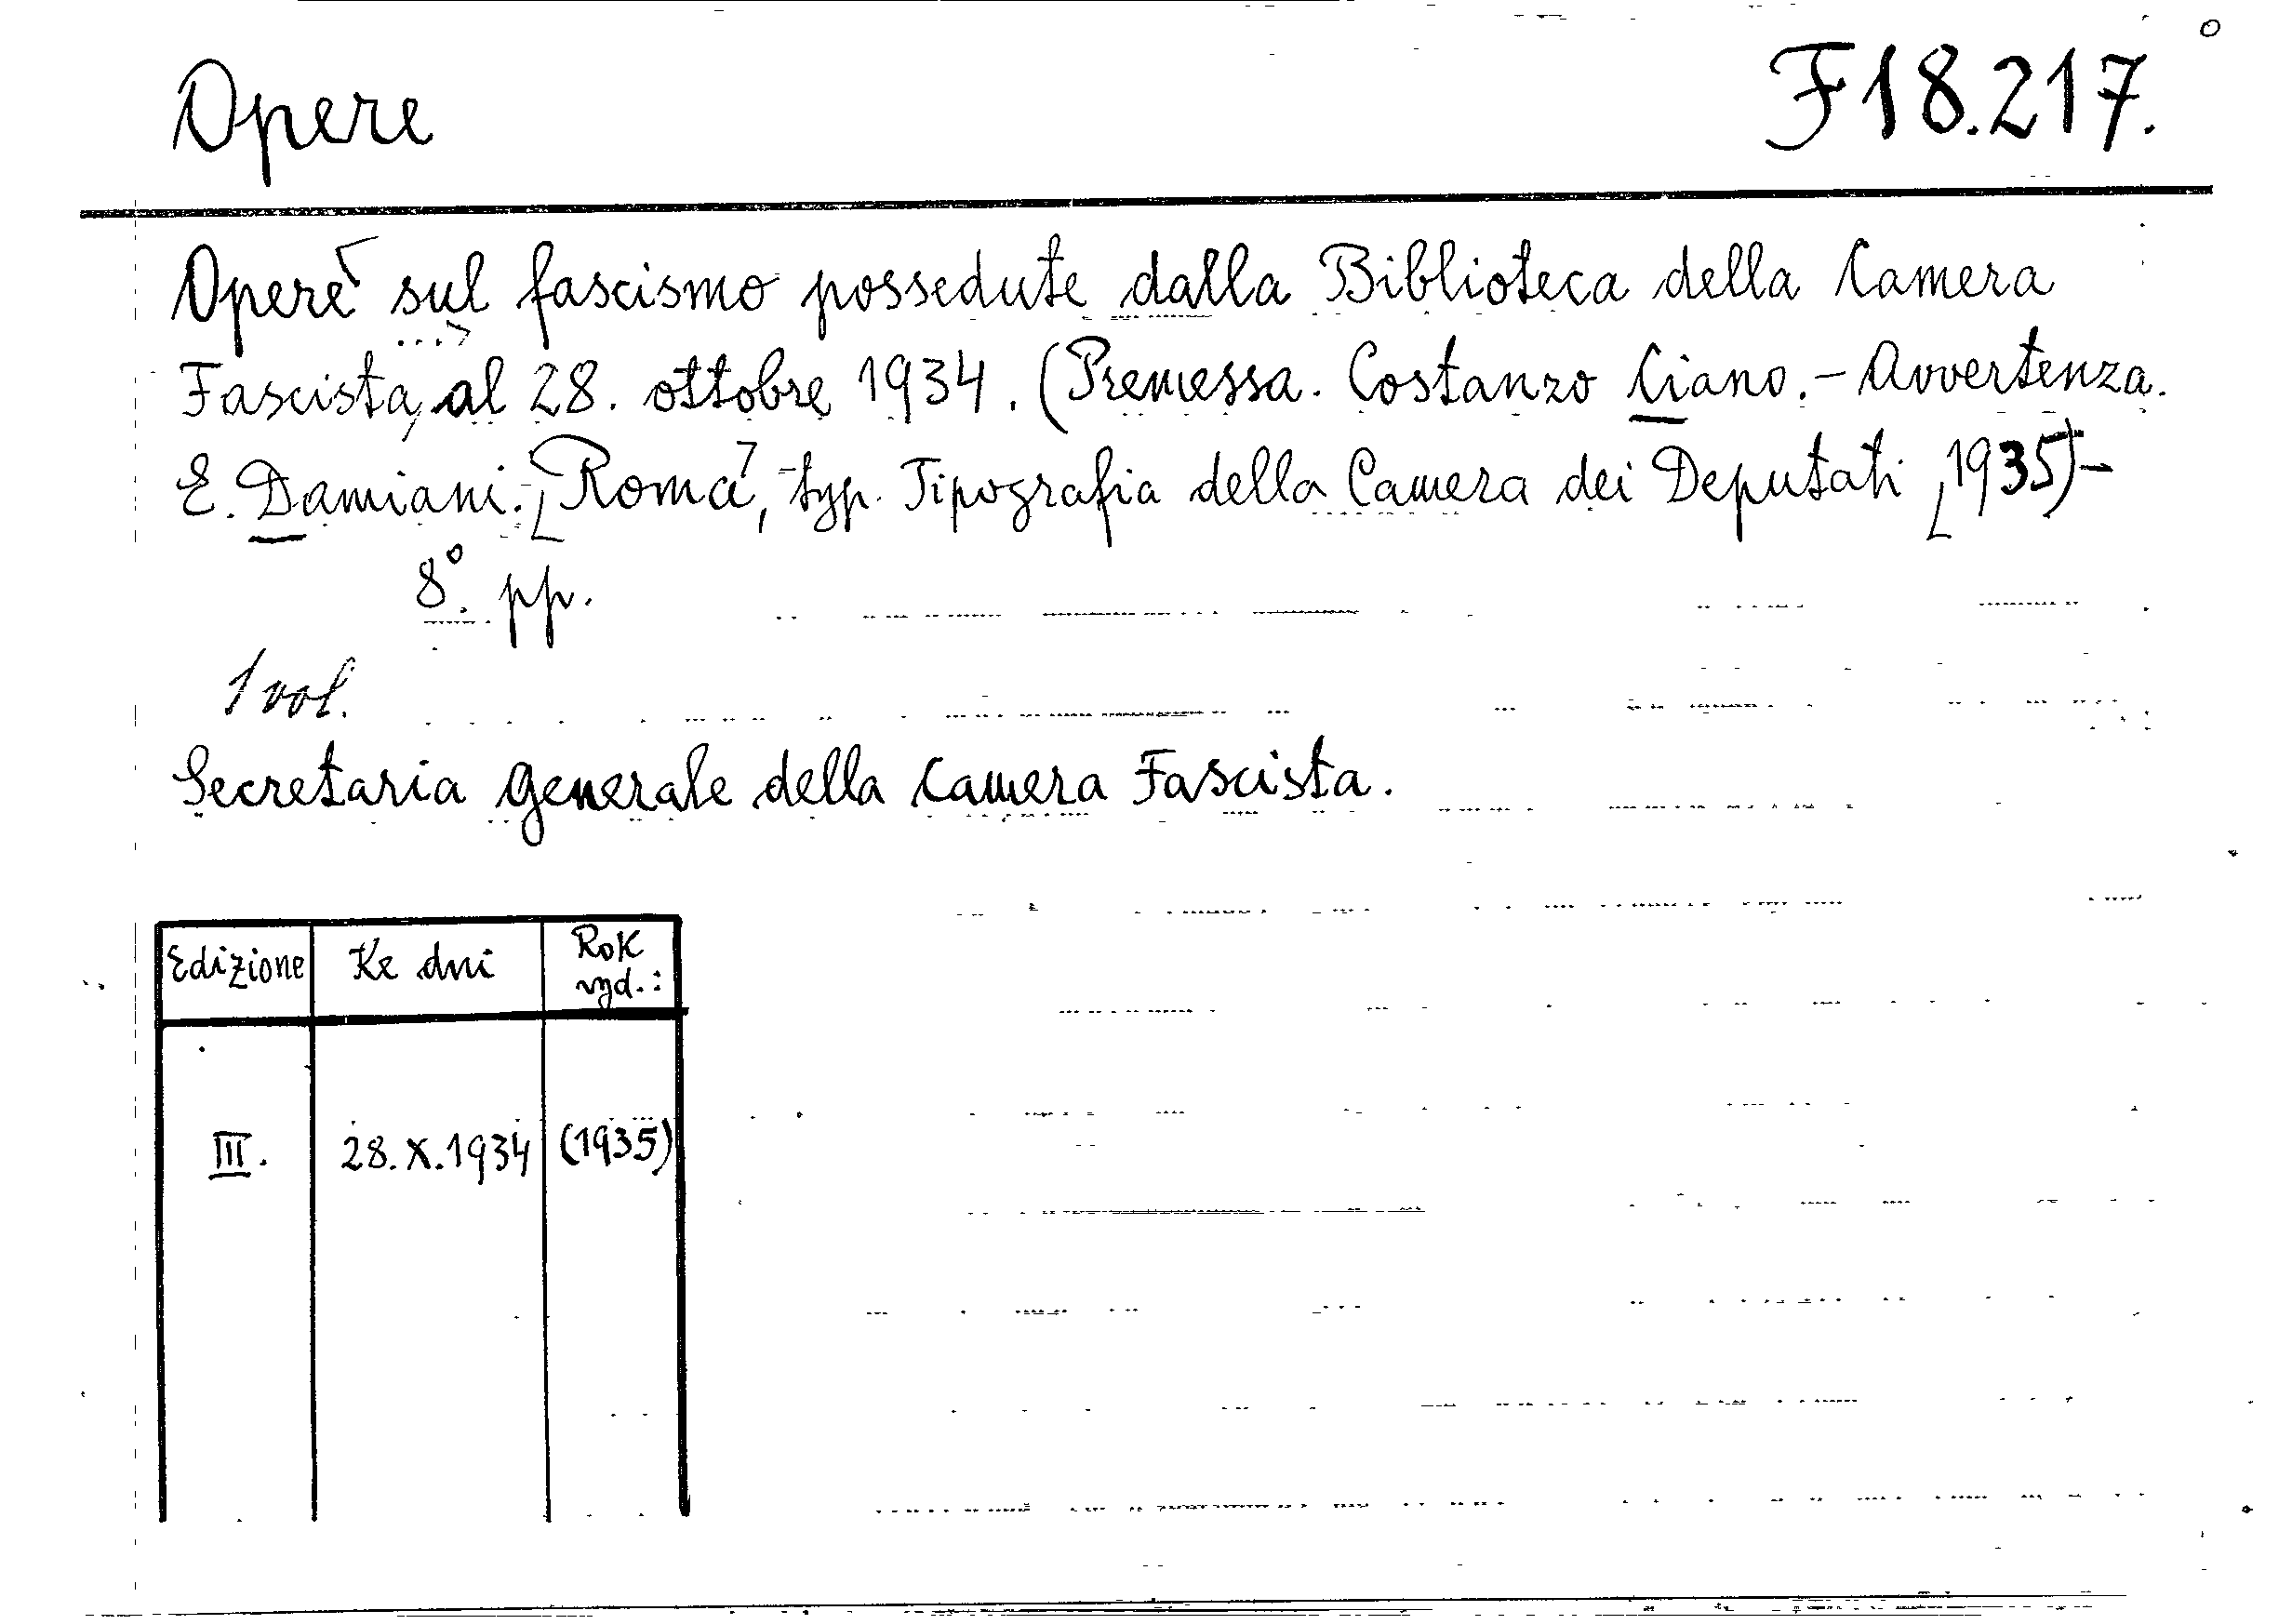 Opere
F 18.217.
Opere sul fascismo possedute dalla Biblioteca della Camera
Fascista, al 28. ottobre 1934. (Premessa. Costanzo Ciano. - Avvertenza.
E. Damiani. [Roma], typ. Tipografia della Camera dei Deputati [1935) -
8°. pp.
1 vol.
Secretaria generale della Camera Fascista.
Edizione Ke dni Rok
vyd.:
III. 28.X.1934 (1935)